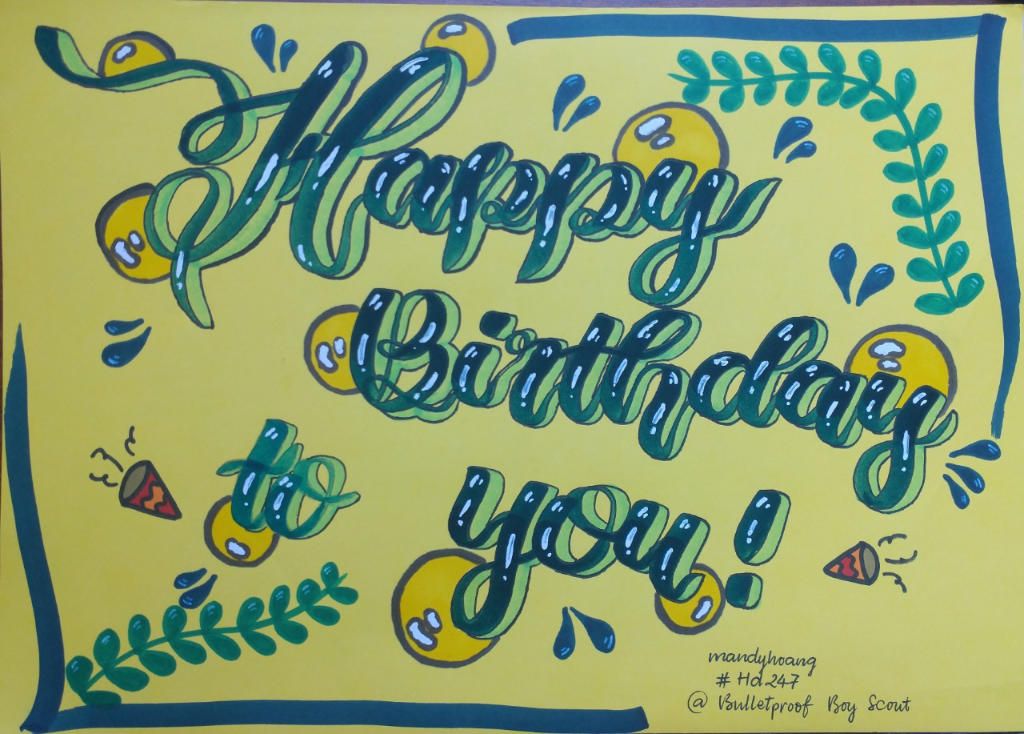 Happy
Birthday
to you!
mandyhoang
# Hd 247
@ Bulletproof Boy Scout